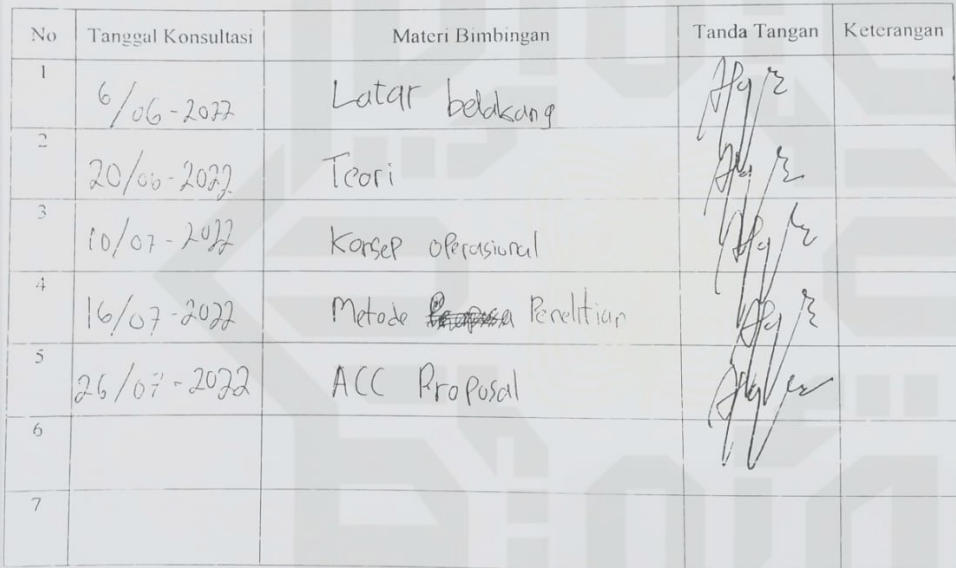 No Tanggal Konsultasi Materi Bimbingan Tanda Tangan Keterangan
1 6/06-2022 Latar belakang
2 20/06-2022 Teori
3 10/07-2022 Konsep operasional
4 16/07-2022 Metode Penelitian
5 26/07-2022 ACC Proposal
6
7